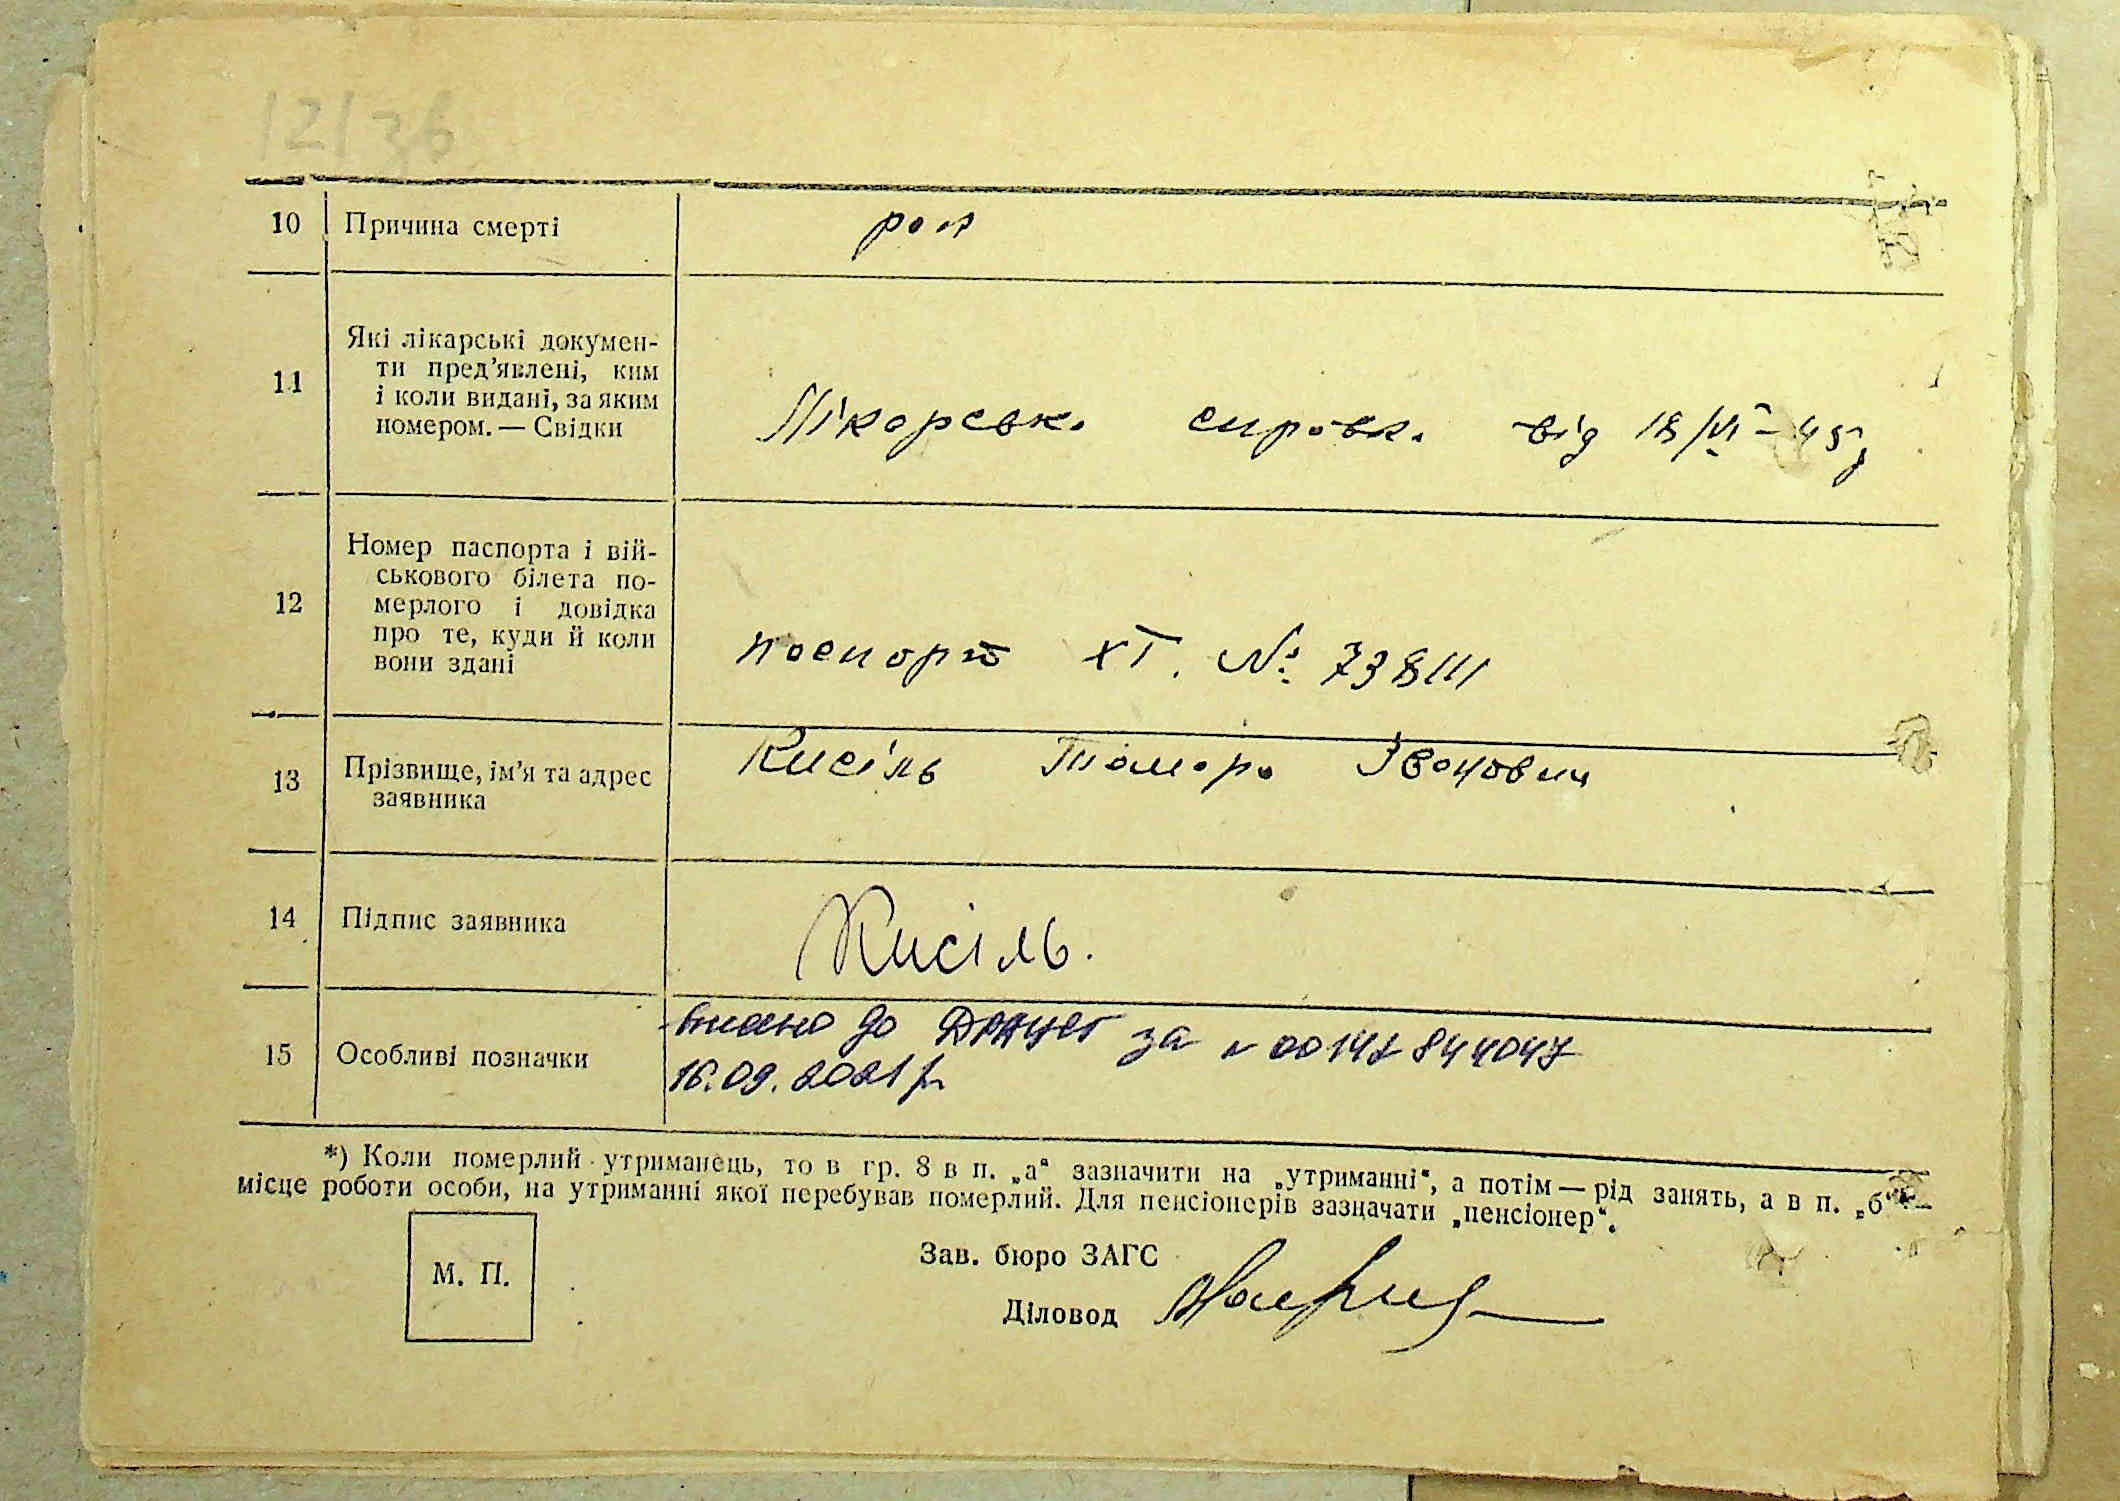 12136
10 Причина смерті рак
11 Які лікарські докумен-
ти пред'явлені, ким
і коли видані, за яким
номером. — Свідки
Лікарськ. справк. від 18/VI - 45 р
12 Номер паспорта і вій-
ськового білета по-
мерлого і довідка
про те, куди й коли
вони здані
паспорт ХТ. № 738111
13 Прізвище, ім'я та адрес
заявника
Кисіль Тамара Іванович
14 Підпис заявника Кисіль.
15 Особливі позначки
внесено до ДРАЦСГ за №
16.09.2021 р.
*) Коли померлий утриманець, то в гр. 8 в п. „а“ зазначити на „утриманні“, а потім — рід занять, а в п. „б“ —
місце роботи особи, на утриманні якої перебував померлий. Для пенсіонерів зазначати „пенсіонер“.
М. П.
Зав. бюро ЗАГС
Діловод